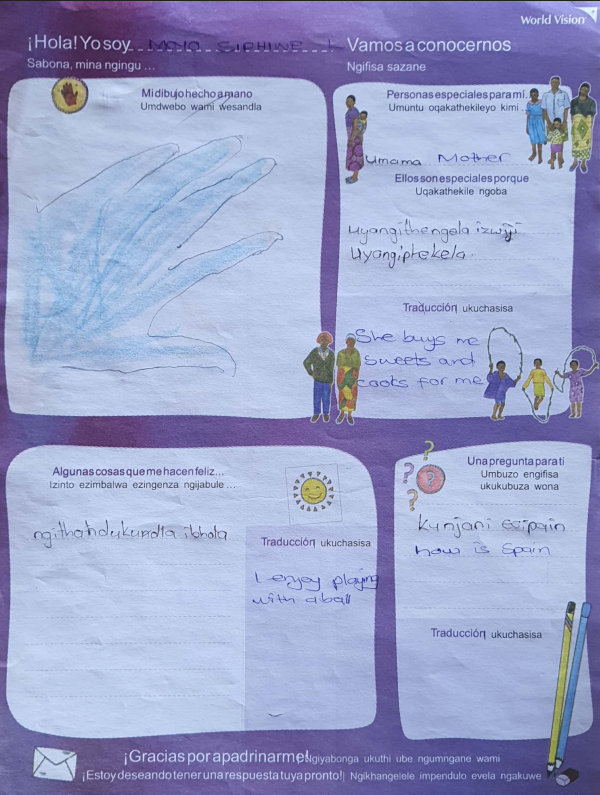 World Vision
¡Hola! Yo soy MOYO SIPHIWE
Sabona, mina ngingu ...
Vamos a conocernos
Ngifisa sazane
Mi dibujo hecho a mano
Umdwebo wami wesandla
Personas especiales para mi...
Umuntu oqakathekileyo kimi...
Umama Mother
Ellos son especiales porque
Uqakathekile ngoba
uyangithengela izwiji
uyangiphekela.
Traducción ukuchasisa
She buys me
sweets and
cooks for me
Algunas cosas que me hacen feliz...
Izinto ezimbalwa ezingenza ngijabule ....
ngithandukundla ibhola
Traducción ukuchasisa
I enjoy playing
with a ball
Una pregunta para ti
Umbuzo engifisa
ukukubuza wona
Kunjani espain
how is Spain
Traducción ukuchasisa
¡Gracias por apadrinarme! Ngiyabonga ukuthi ube ngumngane wami
¡Estoy deseando tener una respuesta tuya pronto! Ngikhangelele impendulo evela ngakuwe